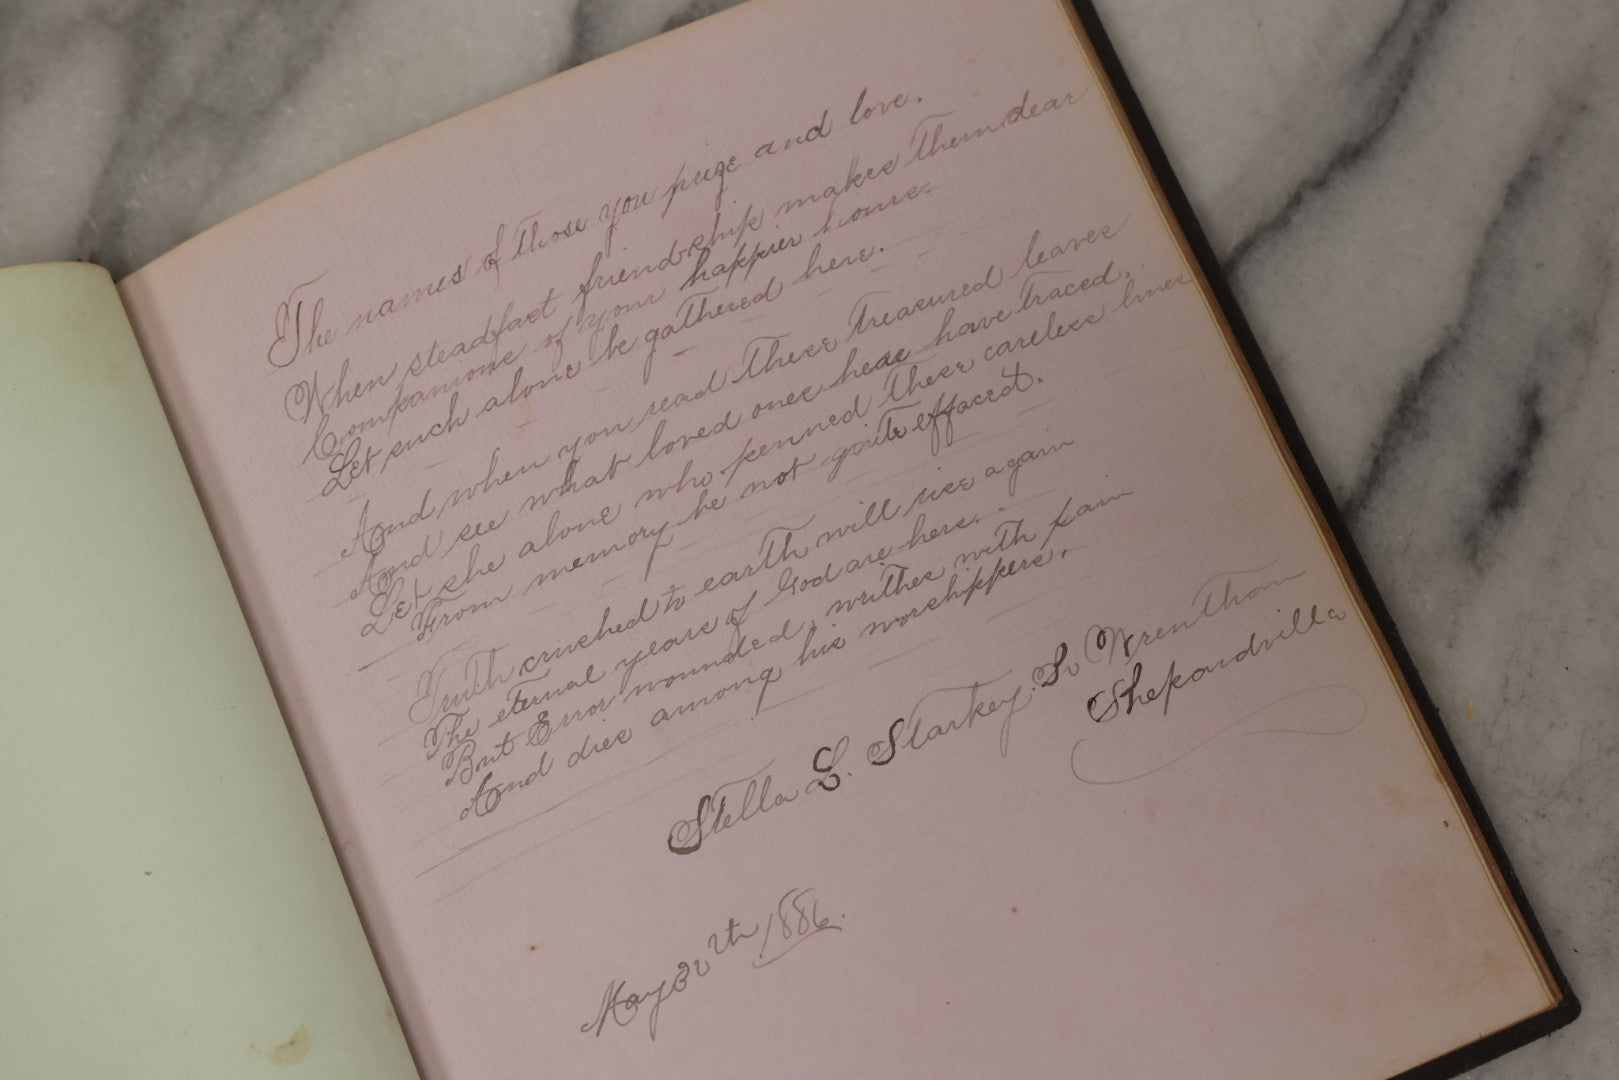 The names of those you prize and love.
When steadfast friendship makes them dear
Companions of your happier hours.
Let such alone be gathered here.
And when you read these treasured leaves
And see what loved ones hear have traced.
Let she alone who penned these careless lines
From memory be not quite effaced.
Truth crushed to earth will rise again
The eternal years of God are here.
But Error wounded, writhes with pain
And dies among his worshippers.
Stella L. Starkey. So Wrentham
Shepardville
May th 1886.